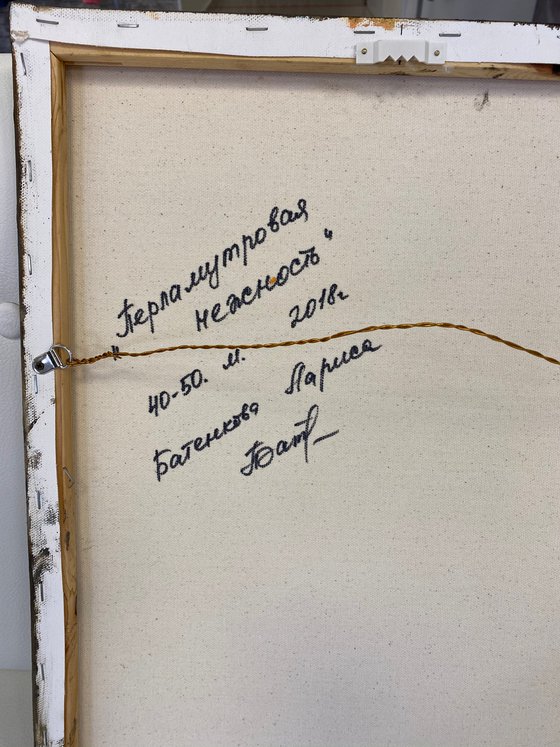 "Перламутровая
нежность"
2018г
40-50. м.
Батенкова Лариса
Бат